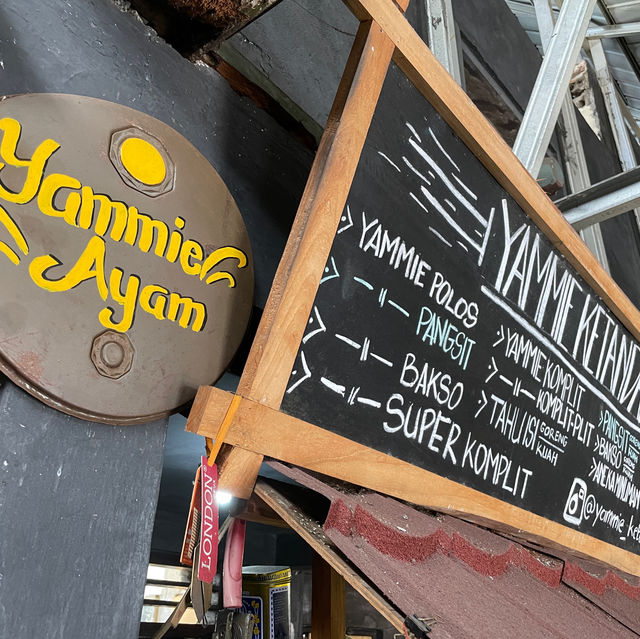 Yammie
Ayam
YAMMIE
YAMMIE POLOS
-"- PANGSIT
-"- BAKSO
-"- SUPER KOMPLIT
YAMMIE KOMPLIT
-"- KOMPLIT-PLIT
TAHU ISI GORENG
KUAH
PANGSIT
BAKSO
LONDON